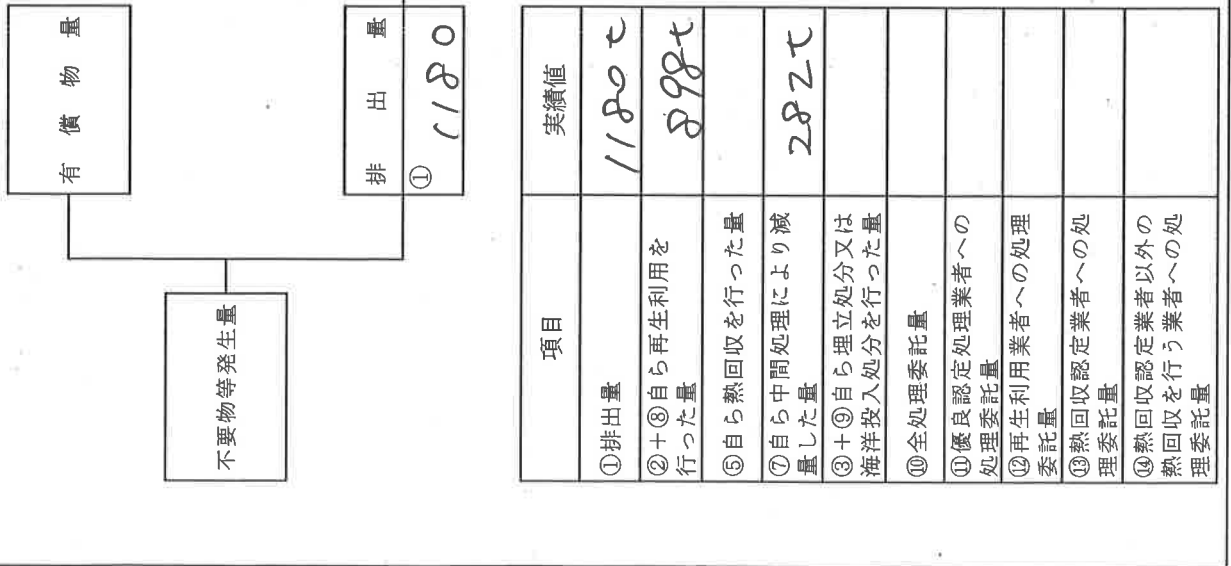 有償物量
排出量
① 1180
不要物等発生量
項目 実績値
①排出量 1180t
②+⑧自ら再生利用を
行った量 898t
⑤自ら熱回収を行った量
⑦自ら中間処理により減
量した量 282t
③+⑨自ら埋立処分又は
海洋投入処分を行った量
⑩全処理委託量
⑪優良認定処理業者への
処理委託量
⑫再生利用業者への処理
委託量
⑬熱回収認定業者への処
理委託量
⑭熱回収認定業者以外の
熱回収を行う業者への処
理委託量